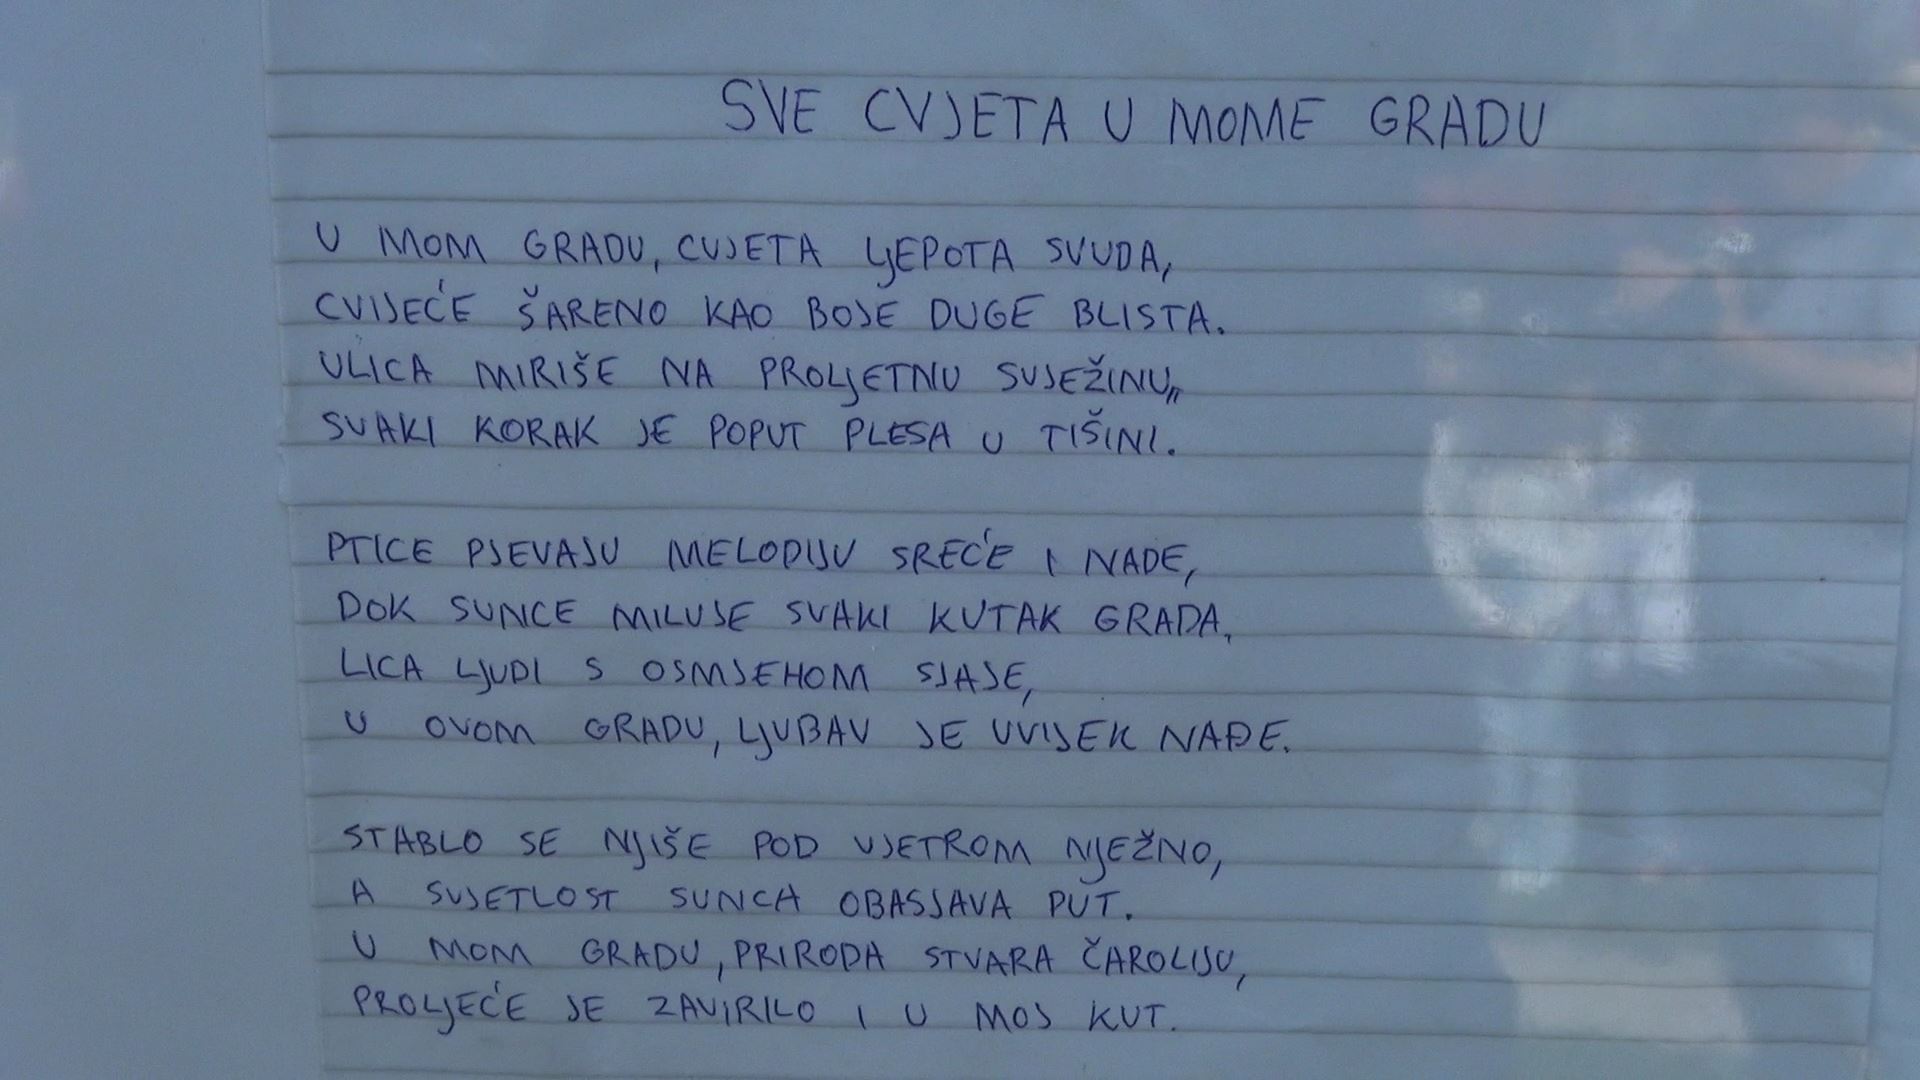 SVE CVJETA U MOME GRADU
U MOM GRADU, CVJETA LJEPOTA SVUDA,
CVIJEĆE ŠARENO KAO BOJE DUGE BLISTA.
ULICA MIRIŠE NA PROLJETNU SVJEŽINU,,
SVAKI KORAK JE POPUT PLESA U TIŠINI.
PTICE PJEVAJU MELODIJU SREĆE I NADE,
DOK SUNCE MILUJE SVAKI KUTAK GRADA,
LICA LJUDI S OSMJEHOM SJAJE,
U OVOM GRADU, LJUBAV JE UVIJEK NAĐE.
STABLO SE NJIŠE POD VJETROM NJEŽNO,
A SVJETLOST SUNCA OBASJAVA PUT.
U MOM GRADU, PRIRODA STVARA ČAROLIJU,
PROLJEĆE JE ZAVIRILO I U MOJ KUT.